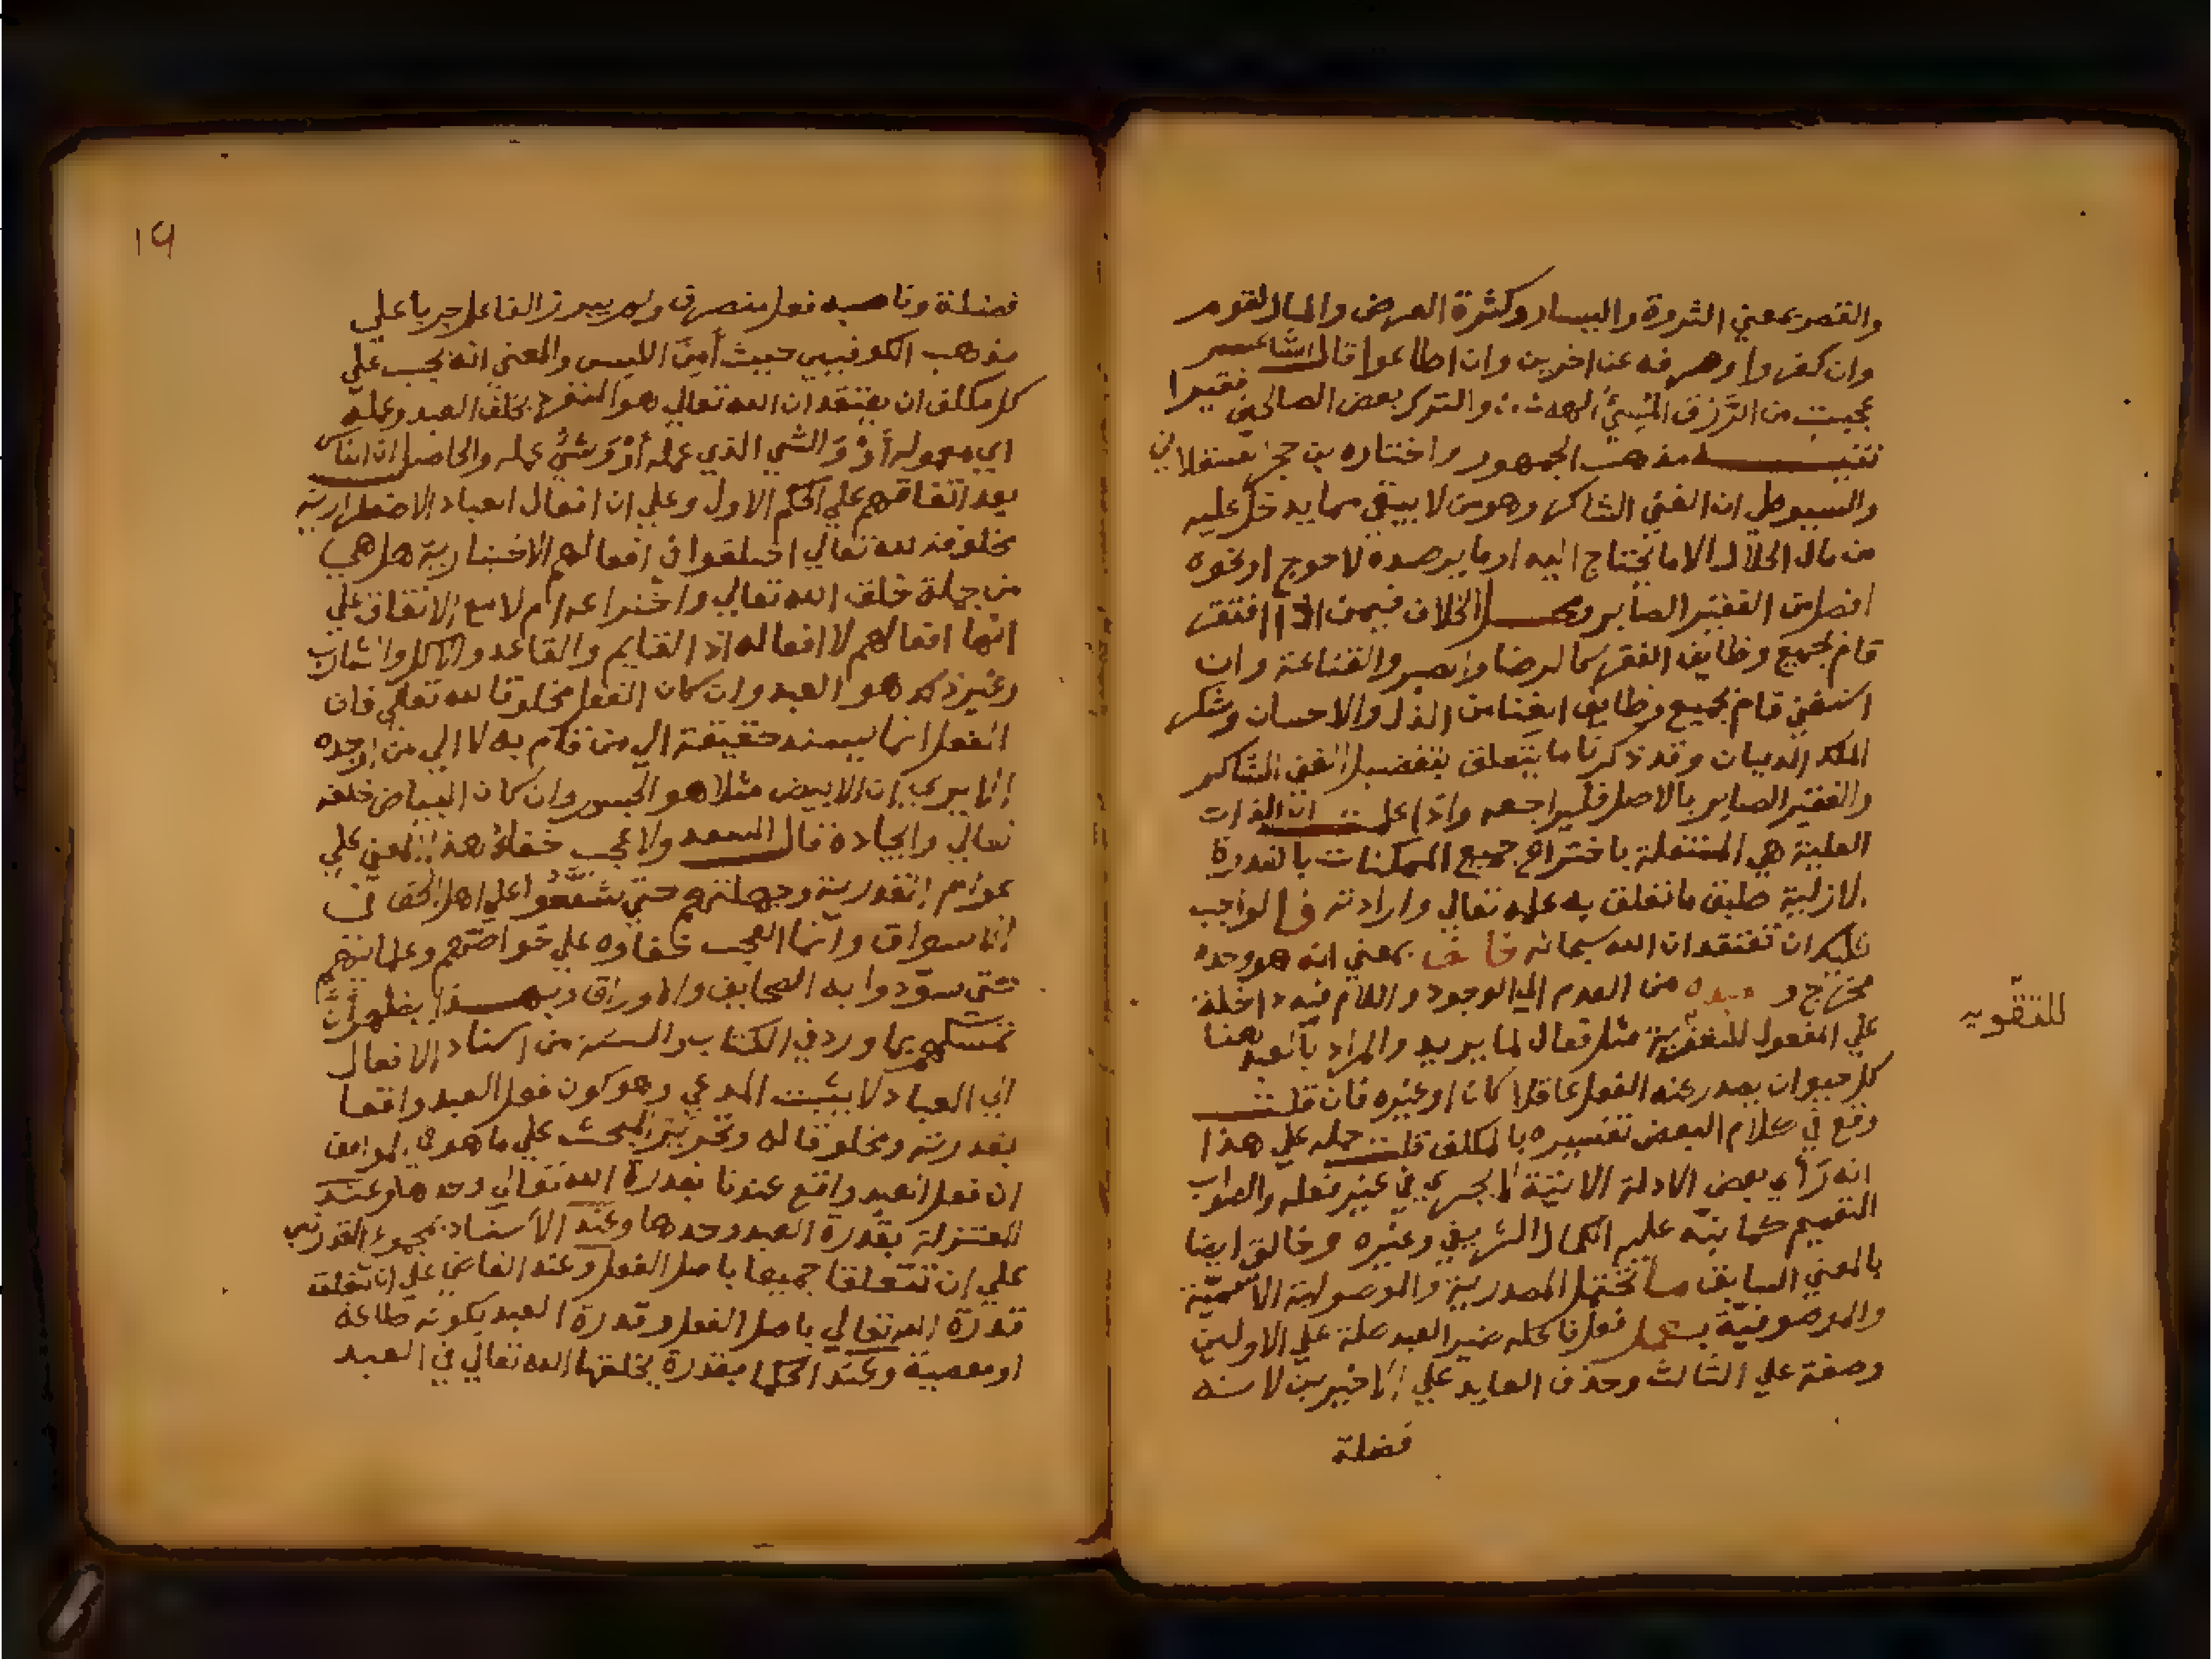 والقصر بمعني الثروة واليسار وكثرة العرض والمال لقوم
وان كفروا وصرفه عن اخرين وان اطاعوا قال الشاعر
عجبت من الرزق المسيء الهه ... والترك بعض الصالحين فقيرا
تنبيه مذهب الجمهور واختاره بن حجر العسقلاني
والسيوطي ان الغني الشاكر وهو من لا يبقي مما يدخل عليه
من مال الحلال الا ما يحتاج اليه او ما يرصده لاحوج او نحوه
افضل من الفقير الصابر ومحل الخلاف فيمن اذا افتقر
قام بجميع وظايف الفقر كالرضا والصبر والقناعة وان
استغني قام بجميع وظايف الغنا من البذل والاحسان وشكر
الملك الديان وقد ذكرنا ما يتعلق بتفضيل الغني الشاكر
والفقير الصابر بالاصل فليراجعه واذا علمت ان الذات
العلية هي المستقلة باختراع جميع الممكنات بالقدرة
الازلية طبق ما تعلق به علمه تعالي وارادته فالواجب
عليك ان تعتقد ان الله سبحانه خالق بمعني انه هو وحده
مخرج لعبده من العدم الي الوجود واللام فيه داخلة
علي المفعول للتقوية مثل فعال لما يريد والمراد بالعبد هنا
للتقويه
كل حيوان يصدر عنه الفعل عاقلا كان او غيره فان قلت
وقع في كلام البعض تفسيره بالمكلف قلت حمله علي هذا
انه رأي بعض الادلة الاتية لا يجري في غير فعله والصواب
التعميم كما نبه عليه الكمال الشريفي وغيره وخالق ايضا
بالمعني السابق ما تحتمل المصدرية والموصولية الاسمية
والموصوفية بعمل فعل فاعله ضمير العبد صلة علي الاولين
وصفة علي الثالث وحذف العايد علي الاخيرين لانه
فضلة
١٩
فضلة وناصبه فعل متصرف ولم يبرز الفاعل جريا علي
مذهب الكوفيين حيث أمن اللبس والمعني انه يجب علي
كل مكلف ان يعتقد ان الله تعالي هو المنفرد بخلق العبد وعمله
اي معموله أو والشي الذي عمله أو وشئ عمله والحاصل ان الناس
بعد اتفاقهم علي الحكم الاول وعلي ان افعال العباد الاضطرارية
مخلوقة لله تعالي اختلفوا في افعالهم الاختيارية هل هي
من جملة خلق الله تعالي واختراعه ام لا مع الاتفاق علي
انها افعالهم لا افعاله اذ القايم والقاعد والاكل والشارب
وغير ذلك هو العبد وان كان الفعل مخلوقا لله تعالي فان
الفعل انما يسند حقيقة الي من قام به لا الي من اوجده
الا يري ان الابيض مثلا هو الجسم وان كان البياض خلقه
تعالي وايجاده قال السعد ولا عجب خفاء هذا المعني علي
عوام القدرية وجهلتهم حتي شنعوا علي اهل الحق في
الاسواق وانما العجب خفاوه علي خواصهم وعلمايهم
حتي سودوا به الصحايف والاوراق وبهذا يظهر ان
تمسكهم بما ورد في الكتاب والسنة من اسناد الافعال
الي العباد لا يثبت المدعي وهو كون فعل العبد واقعا
بقدرته ومخلوقا له وتحرير المبحث علي ما هو في المواقف
ان فعل العبد واقع عندنا بقدرة الله تعالي وحدها وعند
المعتزلة بقدرة العبد وحدها وعند الاستاد بمجموع القدرتين
علي ان تتعلقا جميعا باصل الفعل وعند القاضي علي ان تتعلق
قدرة الله تعالي باصل الفعل وقدرة العبد بكونه طاعة
او معصية وعند الحكما بقدرة يخلقها الله تعالي في العبد